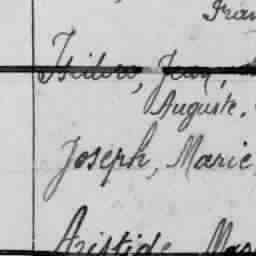 Fran
Isidore, Jean,
Auguste.
Joseph, Marie,
Aristide Mar